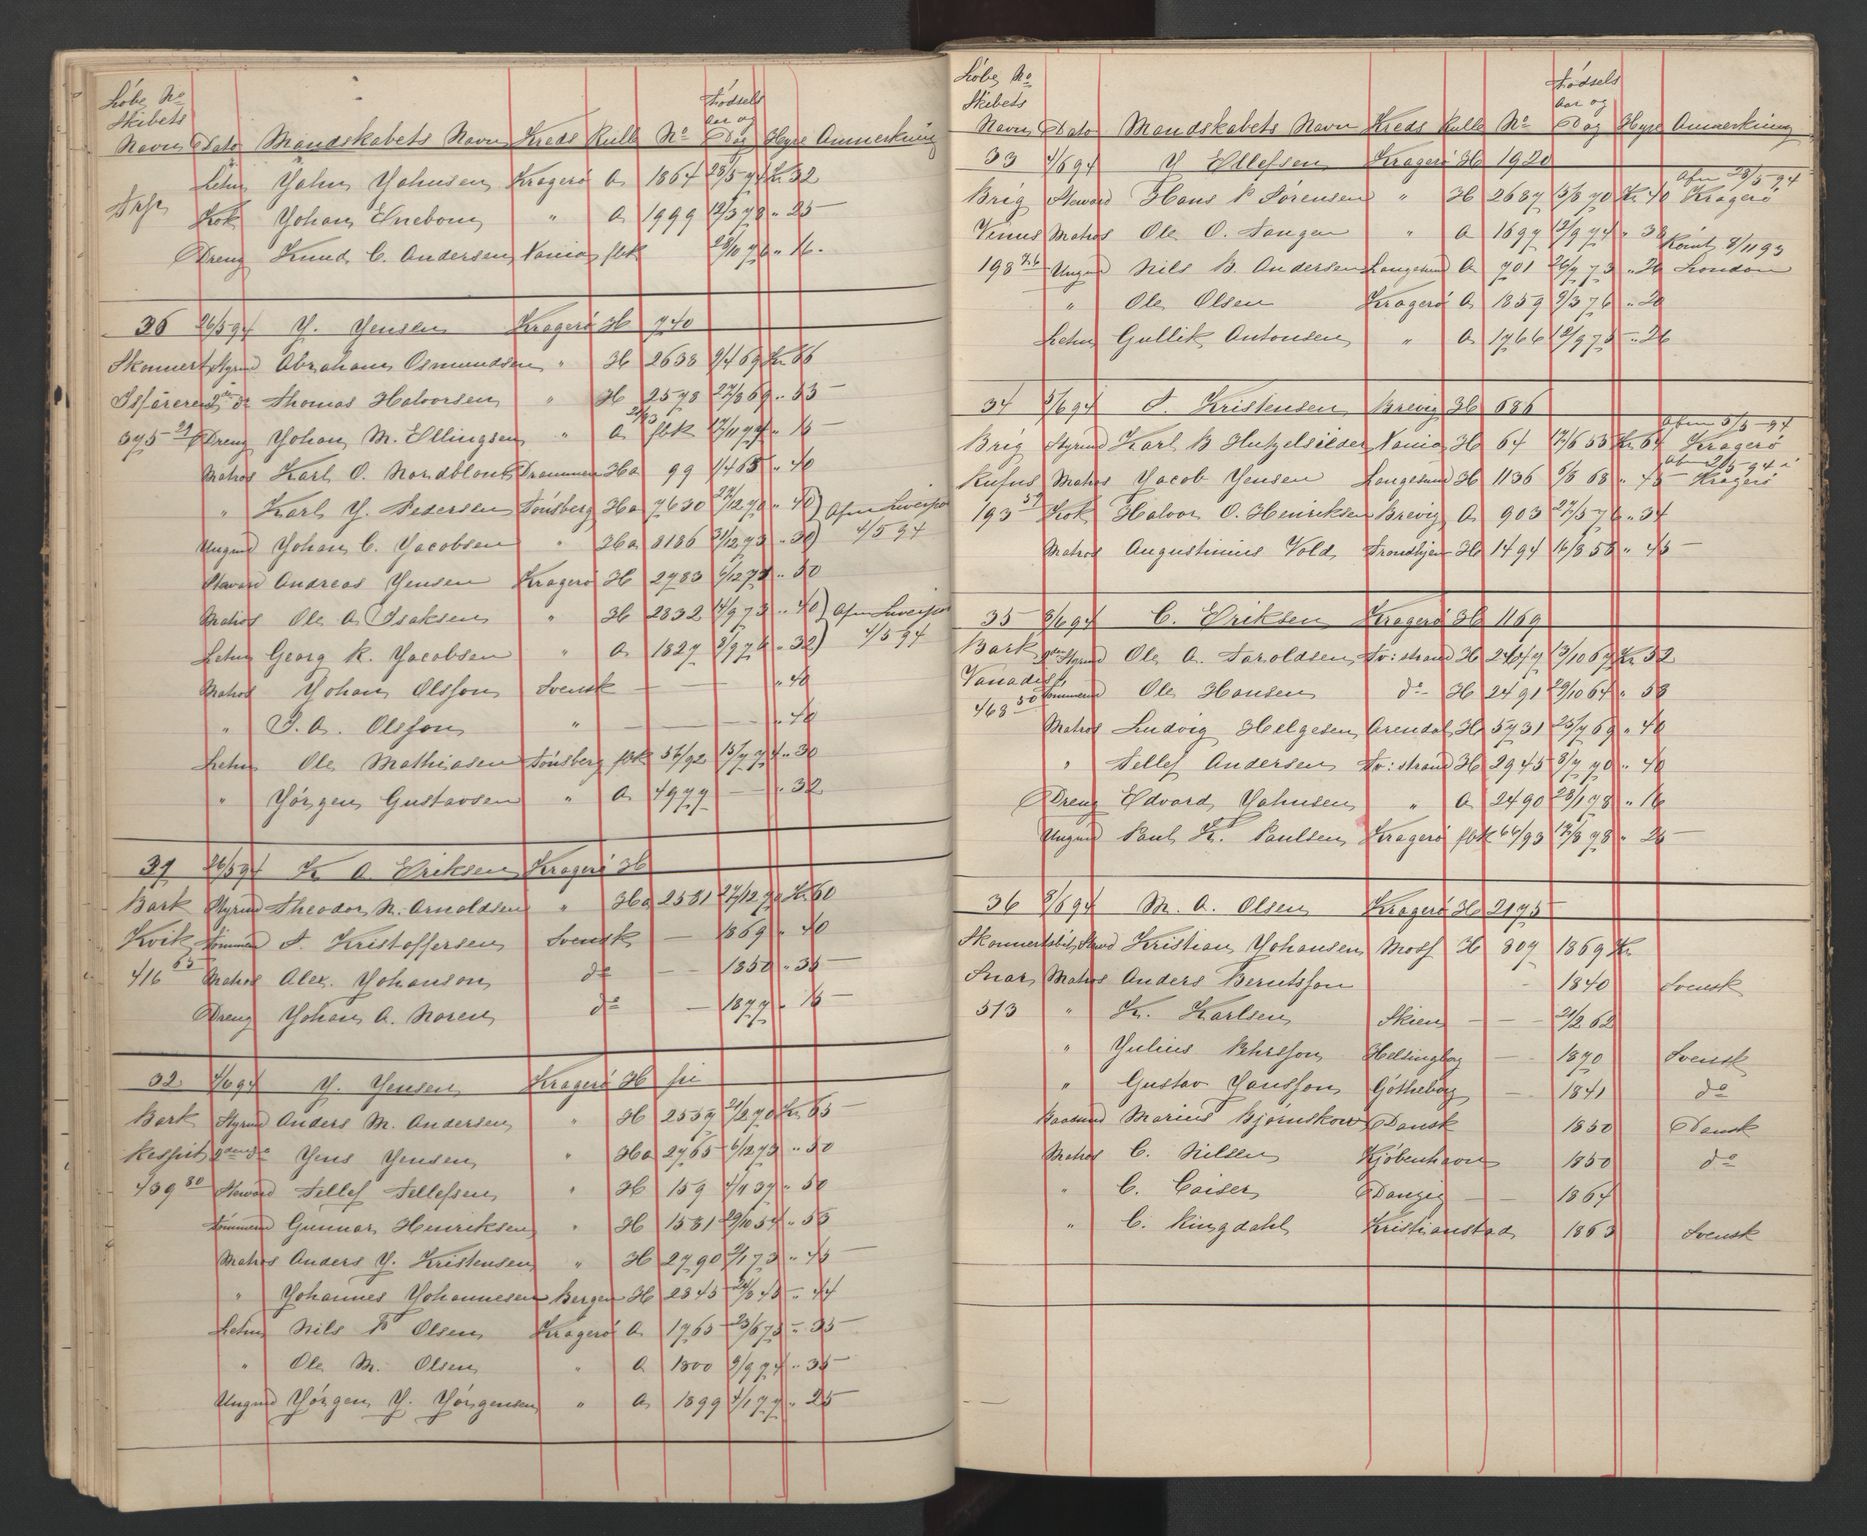 Löbe No
Skibets
Navn Dato Mandskabets Navn Kreds Rulle No Födsels aar og Dag Hyre Anmerkning
Letm Johan Johnsen Kragerö A 1864 23/5 74 Kr 32
Kok Johan Enebom " A 1999 12/3 78 " 25
Dreng Knud C. Andersen Vania fbk 23/11 76 " 16
36 26/5 94 J. Jensen Kragerö H 740
Skonnert Styrmd Abraham Osmundsen " H 2638 9/4 69 Kr 66
2de do Thomas Halvorsen " H 2578 27/8 69 " 53
375 29 Dreng Johan M. Ellingsen " A 21/93 fbk 17/11 77 " 15
Matros Karl O. Nordblom Drammen Ha 99 1/4 65 " 40
" Karl J. Pedersen Tönsberg Ha 7630 27/12 70 " 40 Afm Liverpo
Ungmd Johan C. Jacobsen " Ha 8186 31/12 73 " 30 4/5 94
Steward Andreas Jensen Kragerö H 2783 6/12 73 " 50
Matros Ole A Isaksen " H 2832 14/9 73 " 40 Afm Liverpo
Letm Georg K. Jacobsen " A 1827 8/9 76 " 32 4/5 94
Matros Johan Olsson Svensk — — — " 40
" J. A. Olsson " — — — " 40
Letm Ole Mathiasen Tönsberg fbk 56/92 15/7 74 " 30
" Jörgen Gustavsen " A 4977 — " 32
31 26/5 94 K A. Eriksen Kragerö H
Bark Styrmd Theodor N. Arnoldsen " Ha 2581 27/12 70 Kr 60
Kvik Tömmermd T. Kristoffersen Svensk — 1869 " 40
416 65 Matros Alex. Johanson do — 1850 " 35
Dreng Johan A. Noren do — 1877 " 15
32 4/6 94 J. Jensen Kragerö H fri
Bark Styrmd Anders M. Andersen " H 2557 21/2 70 Kr 65
Respit 2den do Jens Jensen " Ha 2765 6/12 73 " 50
439 80 Steward Tellef Tellefsen " H 159 4/11 37 " 50
Tömmermd Gunnar Henriksen " H 1531 29/10 54 " 53
Matros Anders J. Kristensen " H 2790 2/1 73 " 45
" Johannes Johannesen Bergen H 2345 24/8 45 " 44
Letm Nils F Olsen Kragerö A 1765 23/6 75 " 35
" Ole M. Olsen " A 1800 9/9 74 " 35
Ungmd Jörgen J. Jörgensen " A 1899 4/1 77 " 25
Löbe No
Skibets
Navn Dato Mandskabets Navn Kreds Rulle No Födsels aar og Dag Hyre Anmerkning
33 4/6 94 J Ellefsen Kragerö H 1920
Brig Steward Hans P Sörensen " H 2687 15/8 70 Kr 40 Afm 28/5 94 Kragerö
Venus Matros Ole O. Tangen " A 1697 12/9 74 " 38
198 76 Ungmd Nils B. Andersen Langesund A 701 26/7 73 " 26 Römt 8/11 93 London
" Ole Olsen Kragerö A 1859 9/3 76 " 20
Letm Gullik Antonsen " A 1766 12/9 75 " 26
34 5/6 94 T. Kristensen Brevig H 686
Brig Styrmd Karl B Hutzelsieder Vania H 64 17/6 55 Kr 64 Afm 5/5 94 Kragerö
Rufus Matros Jacob Jensen Langesund H 1136 5/8 68 " 45 Afm 21/5 94 Kragerö
193 59 Kok Halvor O. Henriksen Brevig A 903 27/5 76 " 34
Matros Augustinius Vold Trondhjem H 1494 16/8 58 " 45
35 8/6 94 C. Eriksen Kragerö H 1169
Bark 2den Styrmd Ole A. Taroldsen Tv:strand H 2447 13/10 67 Kr 52
Vanadis Tömmermd Ole Hansen do H 2491 29/10 64 " 58
468 50 Matros Ludvig Helgesen Arendal H 5731 25/7 69 " 40
" Tellef Andersen Tv:strand H 2945 8/7 70 " 40
Dreng Edvard Johnsen " A 2490 23/1 78 " 16
Ungmd Paul K. Paulsen Kragerö fbk 66/93 17/8 78 " 26
36 8/6 94 M. A. Olsen Kragerö H 2175
Kristian Johansen Moss H 807 1869 Kr
Snar Matros Anders Berntsson — 1840 Svensk
513 " K. Karlsen Skien — — 21/2 62
" Julius Behrsson Helsingborg — 1870 Svensk
" Gustav Jansson Götheborg — 1841 do
Baadsmd Marius Bjornskow Dansk 1850 Dansk
Matros C. Nilsen Kjöbenhavn 1850 do
" C. Caiser Danzig — — 1864
" C. Ringdahl Kristianstad 1863 Svensk